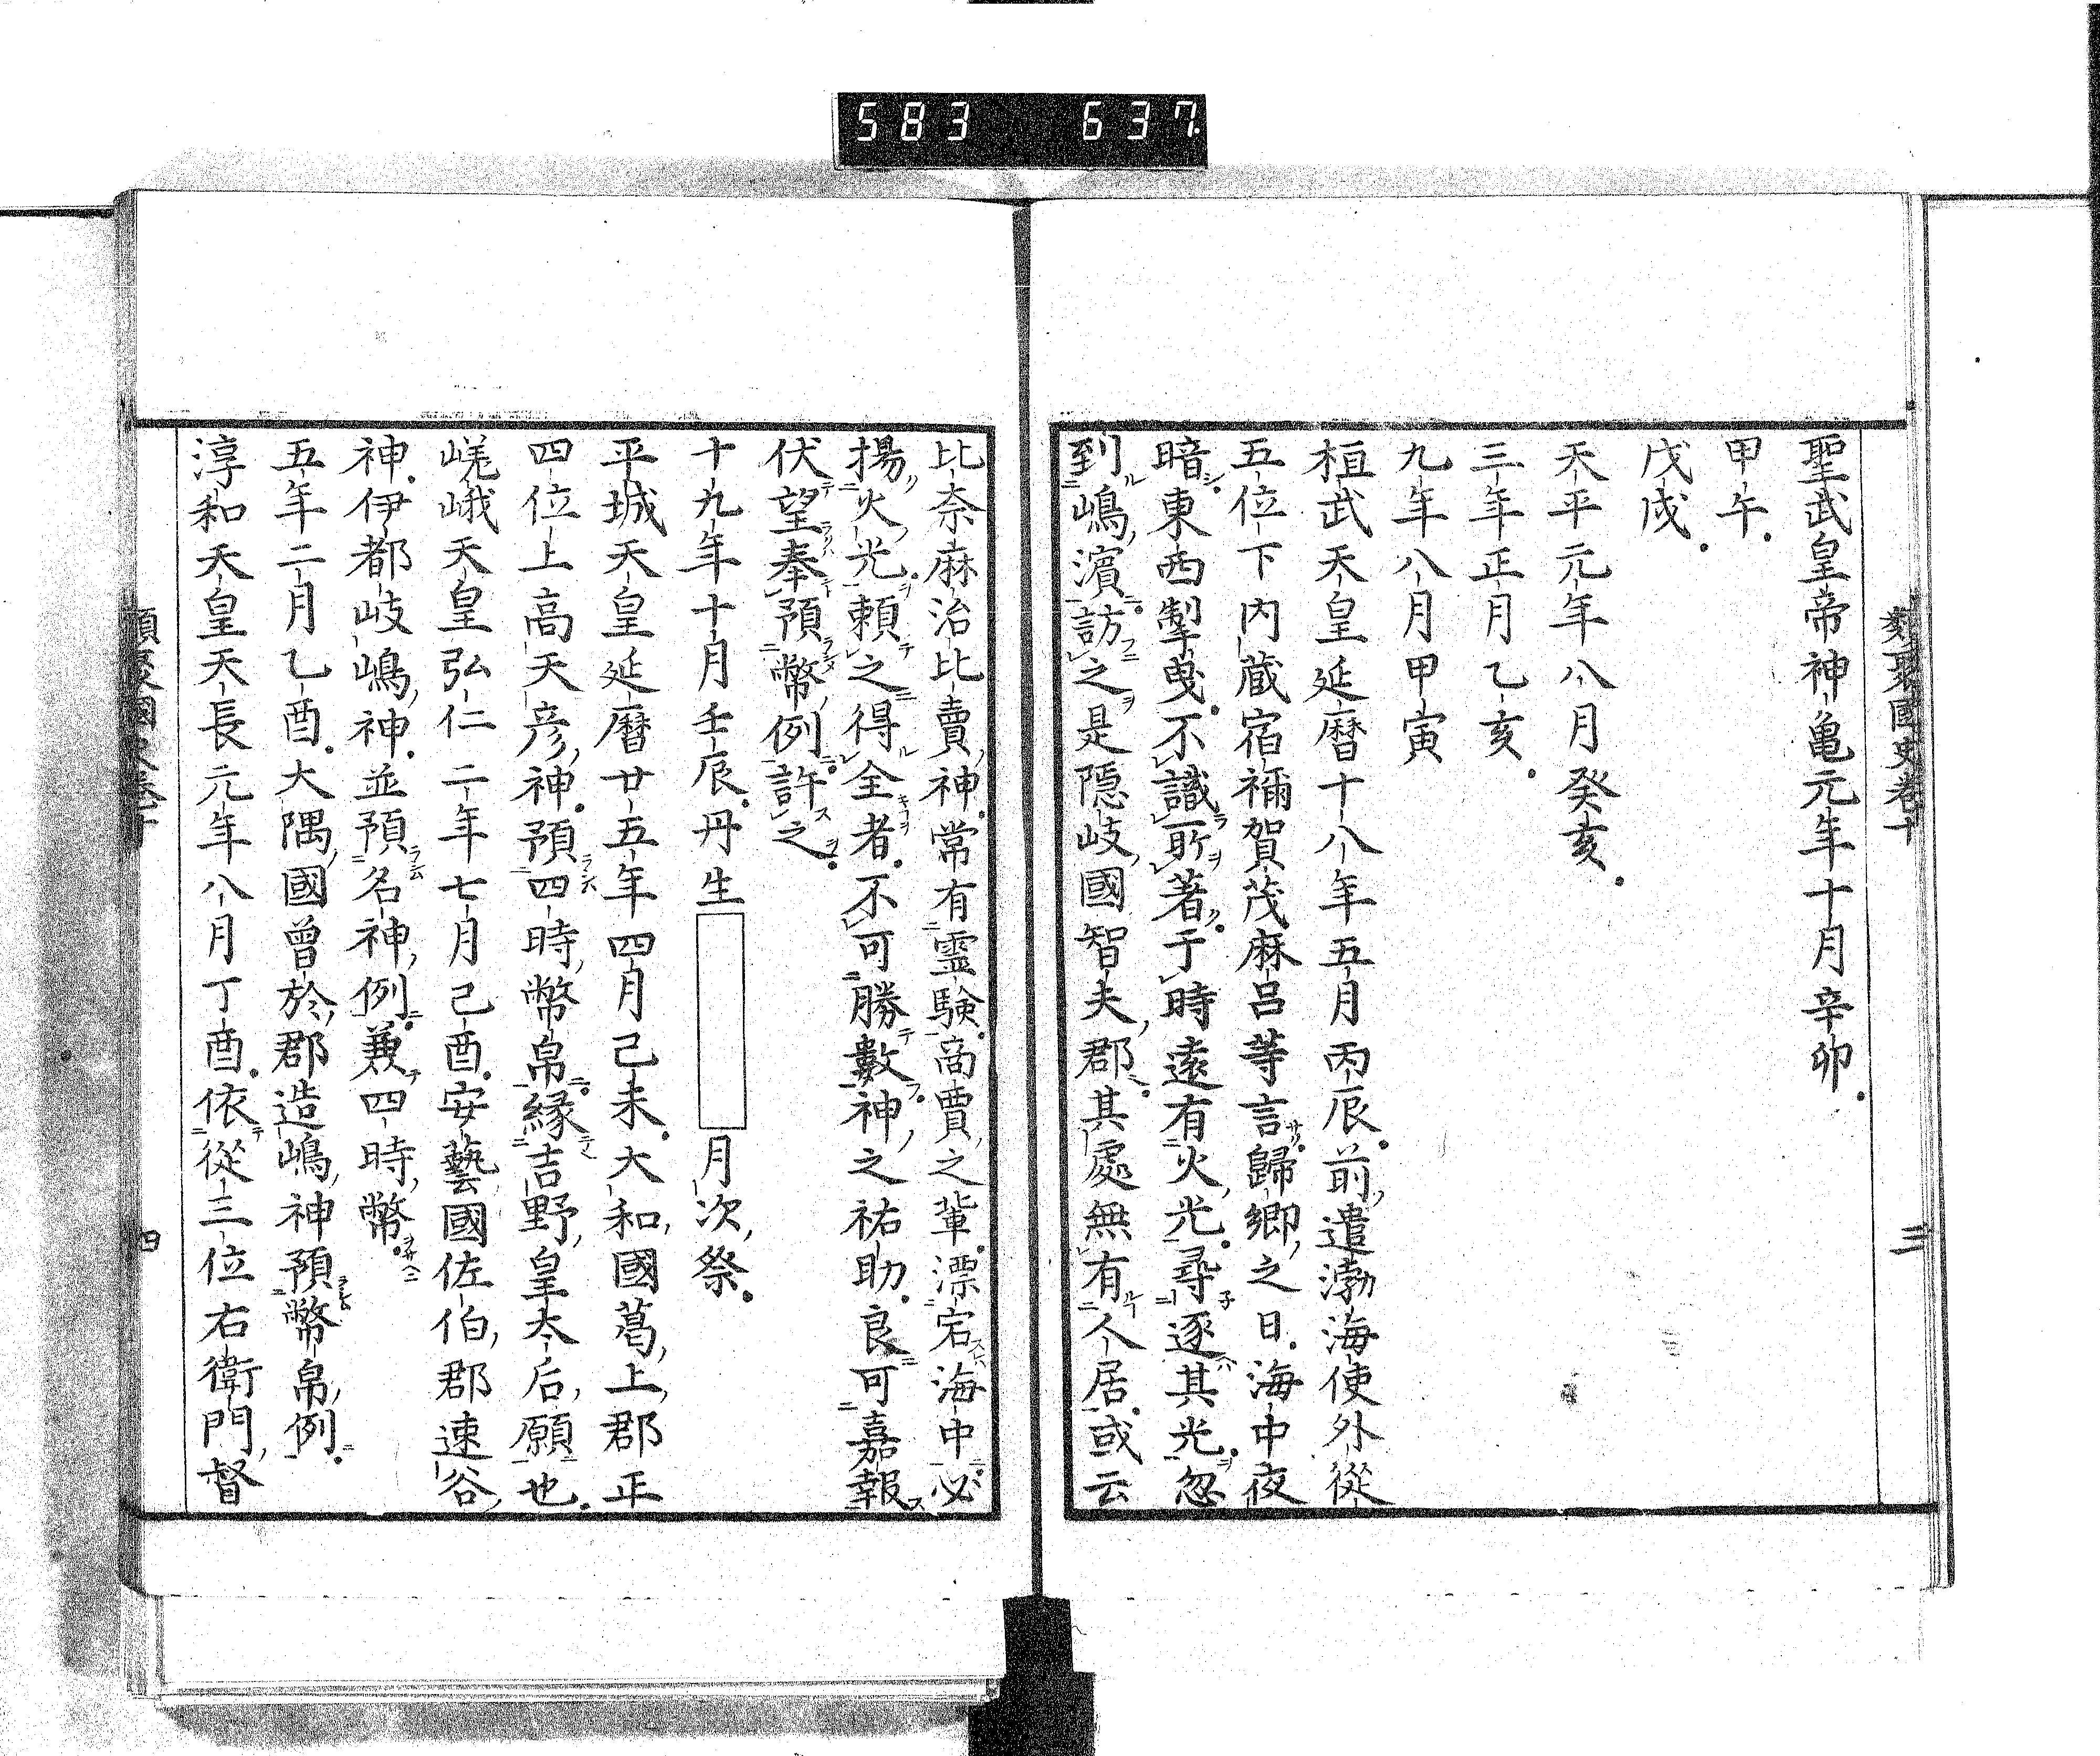 583 637
類聚國史卷十
三
聖武皇帝神亀元年十月辛卯
甲午
戊戌
天平元年八月癸亥
三年正月乙亥
九年八月甲寅
桓武天皇延暦十八年五月丙辰前遣渤海使外從
五位下内蔵宿禰賀茂麻呂等言歸郷之日海中夜
暗東西掣曳不識所著于時遠有火光尋逐其光忽
到嶋濱訪之是隠岐國智夫郡其處無有人居或云
比奈麻治比賣神常有霊驗商賈之輩漂宕海中必
揚火光頼之得全者不可勝數神之祐助良可嘉報
伏望奉預幣例許之
十九年十月壬辰丹生 月次祭
平城天皇延暦廿五年四月己未大和國葛上郡正
四位上高天彦神預四時幣帛縁吉野皇太后願也
嵯峨天皇弘仁二年七月己酉安藝國佐伯郡速谷
神伊都岐嶋神並預名神例兼四時幣
五年二月乙酉大隅國曾於郡造嶋神預幣帛例
淳和天皇天長元年八月丁酉依從三位右衛門督
類聚國史卷十
四